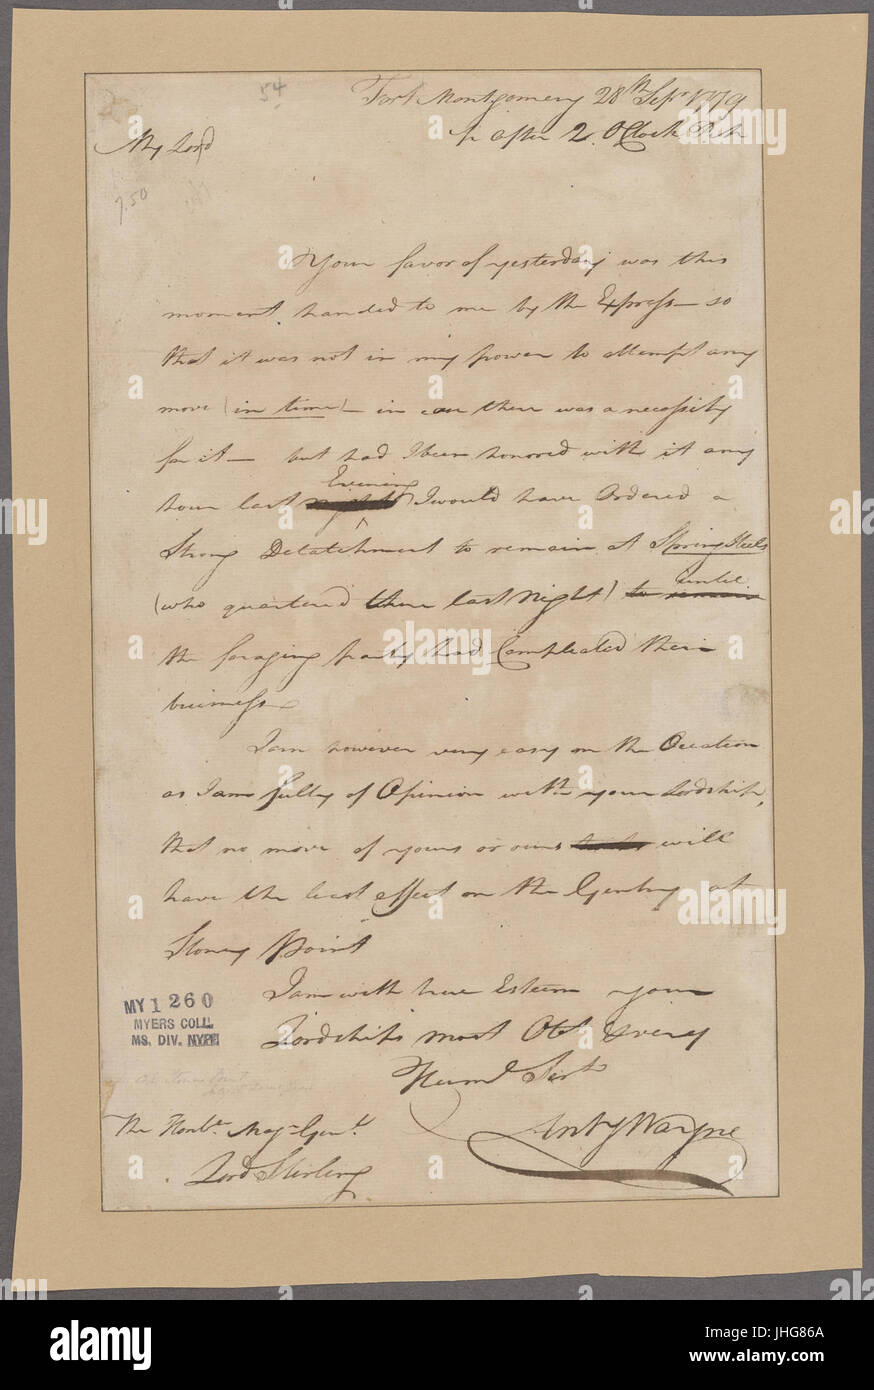 54
Fort Montgomery 28th Sepr 1779
after 2 OClock P.M.
My Lord
7.50
Your favor of yesterday was this
moment handed to me by the Express — so
that it was not in my power to attempt any
move (in time) — in case there was a necessity
for it — but had I been honored with it any
hour last night Evening I would have Ordered a
Strong Detatchment to remain at Spring Steels
(who quartered there last Night) to remain until
the foraging party had Compleated their
buisness
I am however very easy on the Occation
as I am fully of Opinion with your Lordship,
that no move of yours or ours will
have the least effect on the Gentry at
Stoney Point
I am with true Esteem your
Lordship's most Obt & very
Huml Sert
Anty Wayne
MY 1260
MYERS COLL.
MS. DIV. NYPL
The Honble Majr Genl
Lord Stirling
alamy stock photo
JHG86A
www.alamy.com